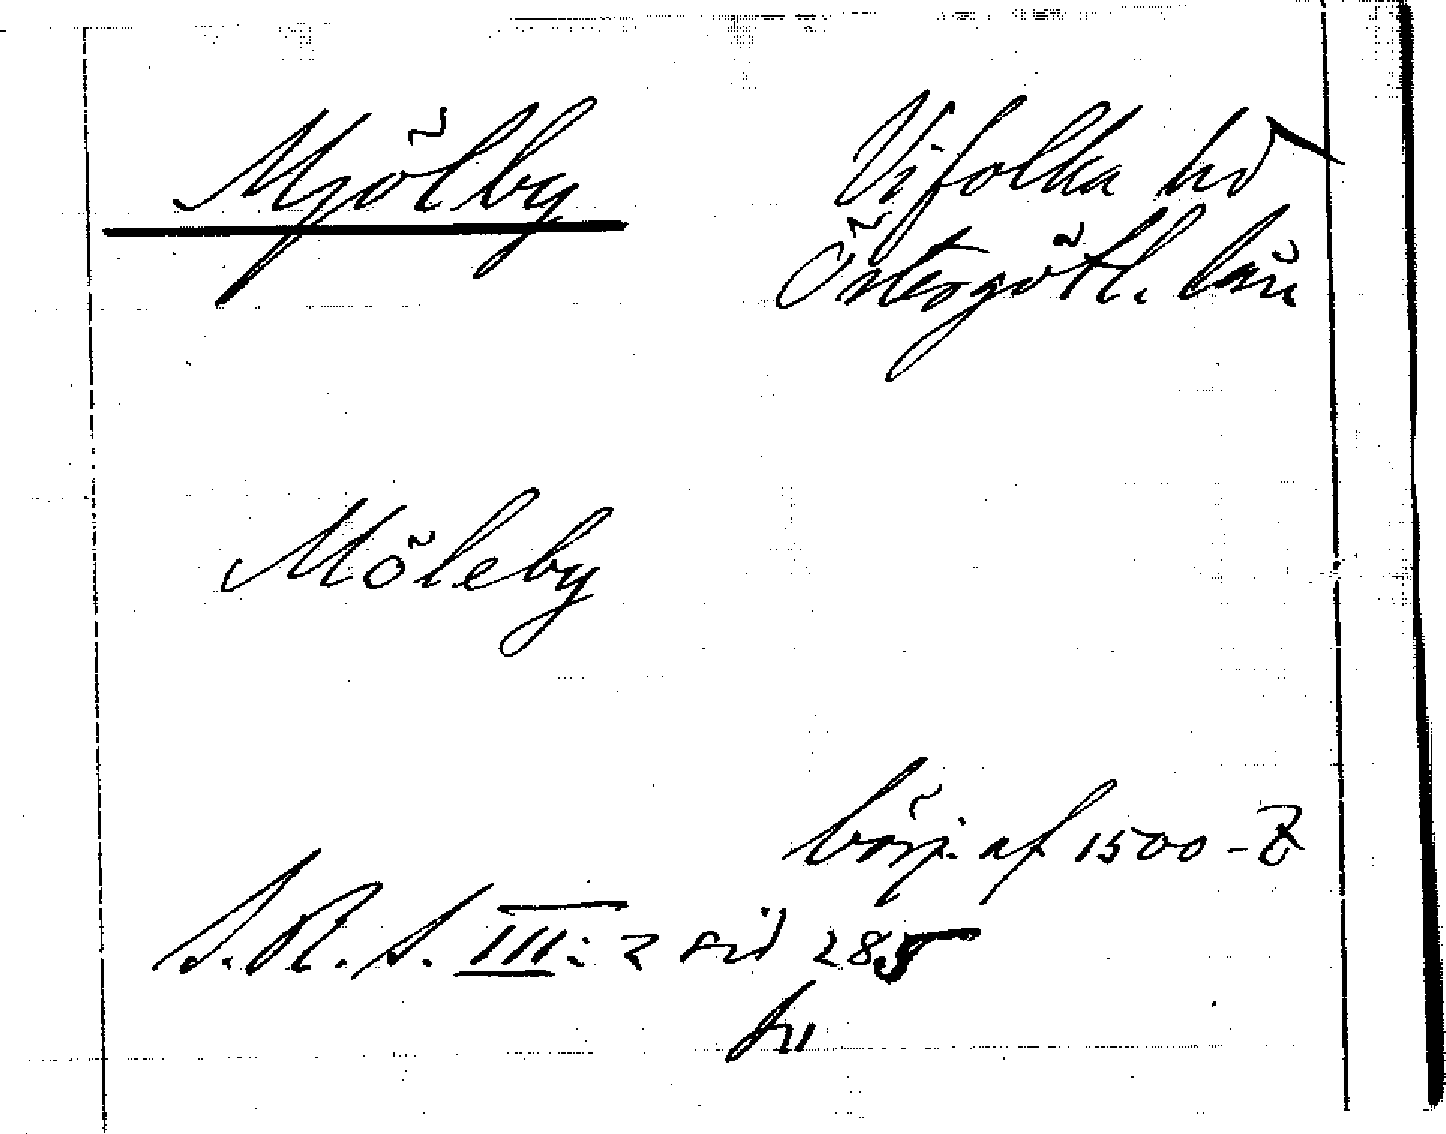 Mjölby
Vifolka hd
Östergötl. län
Möleby
börj. af 1500-t
S. R. S. III: 2 sid 285